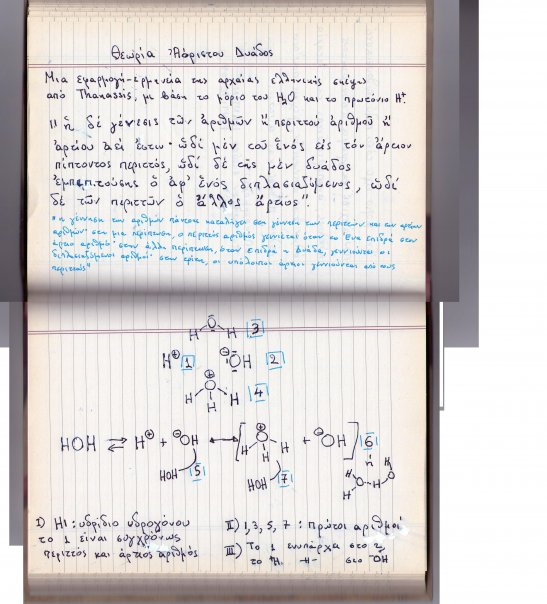 Θεωρία Αόριστου Δυάδος
Μια εφαρμογή-ερμηνεία της αρχαίας ελληνικής σκέψης
από Thanassis, με βάση το μόριο του H₂O και το πρωτόνιο H⁺.
"ἡ δέ γένεσις τῶν ἀριθμῶν ἤ περιττοῦ ἀριθμοῦ ἤ
ἀρτίου ἀεί ἐστιν· ὡδί μέν τοῦ ἑνός εἰς τόν ἄρτιον
πίπτοντος περιττός, ὡδί δέ τῆς μέν δυάδος
ἐμπιπτούσης ὁ ἀφ' ἑνός διπλασιαζόμενος, ὡδί
δέ τῶν περιττῶν ὁ ἄλλος ἄρτιος".
"η γέννηση των αριθμών πάντοτε καταλήγει στη γέννηση των περιττών και των αρτίων
αριθμών· στη μια περίπτωση, ο περιττός αριθμός γεννιέται όταν το Ένα επιδρά στον
άρτιο αριθμό· στην άλλη περίπτωση, όταν επιδρά η Δυάδα, γεννιούνται οι
διπλασιαζόμενοι αριθμοί· στην τρίτη, οι υπόλοιποι άρτιοι γεννιούνται από τους
περιττούς"
H O H 3
H⊕ 1 ⊖OH 2
⊕ O H H H 4
HOH ⇌ H⊕ + ⊖OH ↔ [ ⊕ O H H H + ⊖OH ] 6
HOH 5 HOH 7 ή
H O H O H
I) H1: υδρίδιο υδρογόνου
το 1 είναι συγχρόνως
περιττός και άρτιος αριθμός
II) 1, 3, 5, 7 : Πρώτοι αριθμοί
III) Το 1 ενυπάρχει στο 2,
το ⁺H. -H- στο ⁻OH